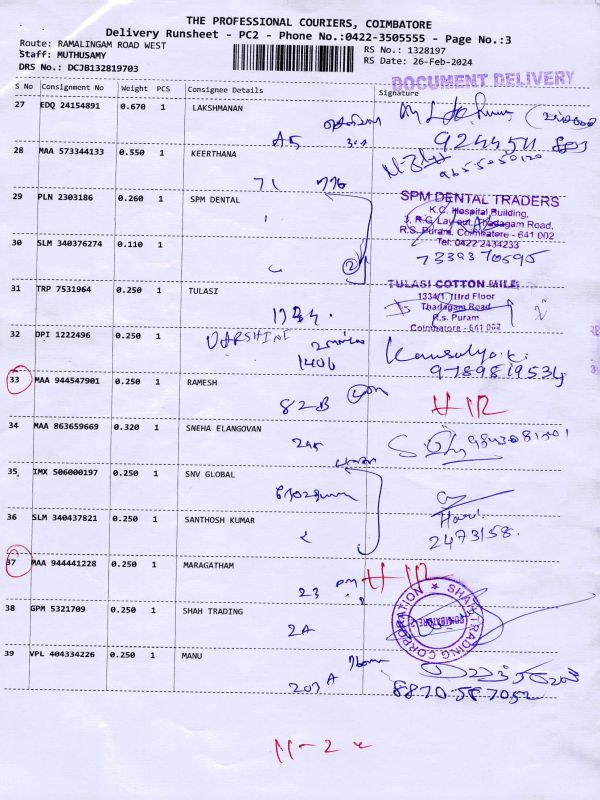 THE PROFESSIONAL COURIERS, COIMBATORE
Delivery Runsheet - PC2 - Phone No.:0422-3505555 - Page No.:3
Route: RAMALINGAM ROAD WEST
Staff: MUTHUSAMY
DRS No.: DCJB132819703
RS No.: 1328197
RS Date: 26-Feb-2024
DOCUMENT DELIVERY
S No Consignment No Weight PCS Consignee Details Signature
27 EDQ 24154891 0.670 1 LAKSHMANAN
A5
28 MAA 573344133 0.550 1 KEERTHANA
9655050120
71 776
29 PLN 2303186 0.260 1 SPM DENTAL
SPM DENTAL TRADERS
K.G. Hospital Building,
3, R.G. Layout, Thadagam Road,
R.S. Puram, Coimbatore - 641 002
Tel: 0422 2434233
30 SLM 340376274 0.110 1
2
7339370595
31 TRP 7531964 0.250 1 TULASI
TULASI COTTON MILE
1334/1, IIIrd Floor
Thadagam Road
R.s. Puram
Coimbatore - 641 002
1334.
32 DPI 1222496 0.250 1 DARSHINI
1406
Kausalya.K.
9789819534
33 MAA 944547901 0.250 1 RAMESH
82B
34 MAA 863659669 0.320 1 SNEHA ELANGOVAN
35 IMX 506000197 0.250 1 SNV GLOBAL
36 SLM 340437821 0.250 1 SANTHOSH KUMAR
Hari.
2473158.
37 MAA 944441228 0.250 1 MARAGATHAM
23
38 GPM 5321709 0.250 1 SHAH TRADING
SHAH TRADING CORPORATION
COIMBATORE-2
2A
39 VPL 404334226 0.250 1 MANU
203 A
8870587052